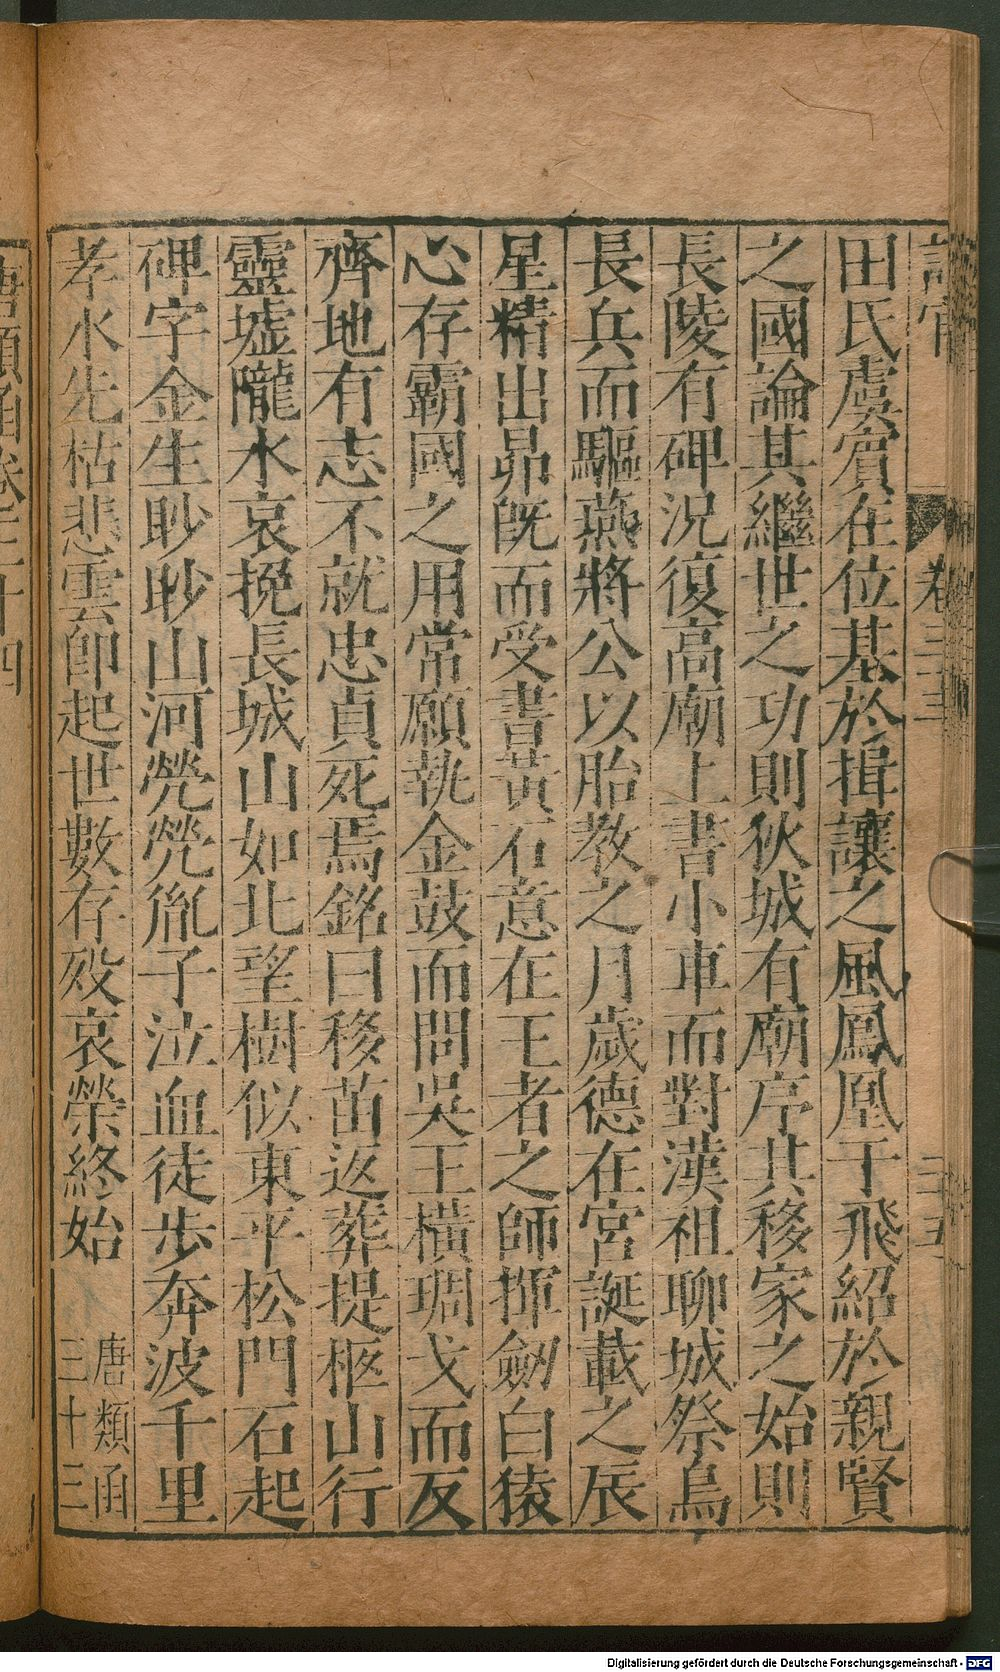 卷三十三
三十五
田氏虞賔在位基於揖讓之風鳳凰于飛紹於親賢
之國論其繼世之功則狄城有廟序其移家之始則
長陵有碑况復高廟上書小車而對漢祖聊城祭鳥
長兵而驅燕將公以胎教之月歲德在宮誕載之辰
星精出昴旣而受書黃石意在王者之師揮劒白猿
心存霸國之用常願執金鼓而問吳王橫琱戈而反
齊地有志不就忠貞死焉銘曰移苗返葬提柩山行
靈墟隴水哀挽長城山如北望樹似東平松門石起
碑字金生眇眇山河煢煢胤子泣血徒步奔波千里
孝水先枯悲雲卽起世數存歿哀榮終始
唐類函
三十三
唐類函卷三十四
Digitalisierung gefördert durch die Deutsche Forschungsgemeinschaft - DFG